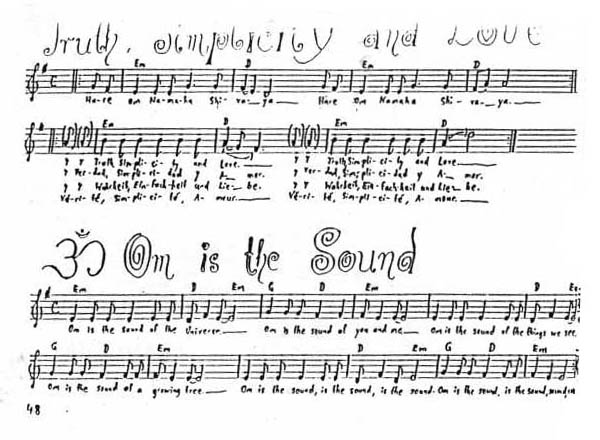 Truth, Simplicity and Love
Em D Em D
Ha-re Om Na-ma-ha Shi-va-ya Hare Om Namaha Shi-va-ya
Em D Em D
Truth, Simpli-ci-ty and Love. Truth, Simpli-ci-ty and Love.
y Ver-dad, Sim-pli-ci-dad y A-mor. y Ver-dad, Sim-pli-ci-dad y A-mor.
Wahrheit, Ein-fach-heit und Lie-be. Wahrheit, Ein-fach-heit und Lie-be.
Vé-ri-té, Sim-pli-ci-té, A-mour. Vé-ri-té, Sim-pli-ci-té, A-mour.
ॐ Om is the Sound
Em D Em G D Em D Em
Om is the sound of the Universe Om is the sound of you and me Om is the sound of the things we see.
G D Em D Em G D Em
Om is the sound of a growing tree Om is the sound, is the sound, is the sound. Om is the sound, is the sound,
48